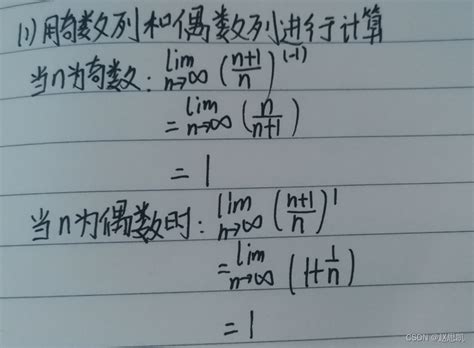 (1) 用奇数列和偶数列进行计算
当n为奇数: lim n→∞ (n+1/n)^(-1)
= lim n→∞ (n/n+1)
= 1
当n为偶数时: lim n→∞ (n+1/n)^1
= lim n→∞ (1+1/n)
= 1
CSDN @赵思凯